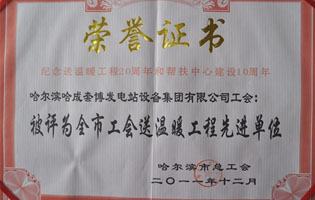 荣誉证书
纪念送温暖工程20周年和帮扶中心建设10周年
哈尔滨哈成泰博发电站设备集团有限公司工会:
被评为全市工会送温暖工程先进单位
哈尔滨市总工会
二〇一一年十二月